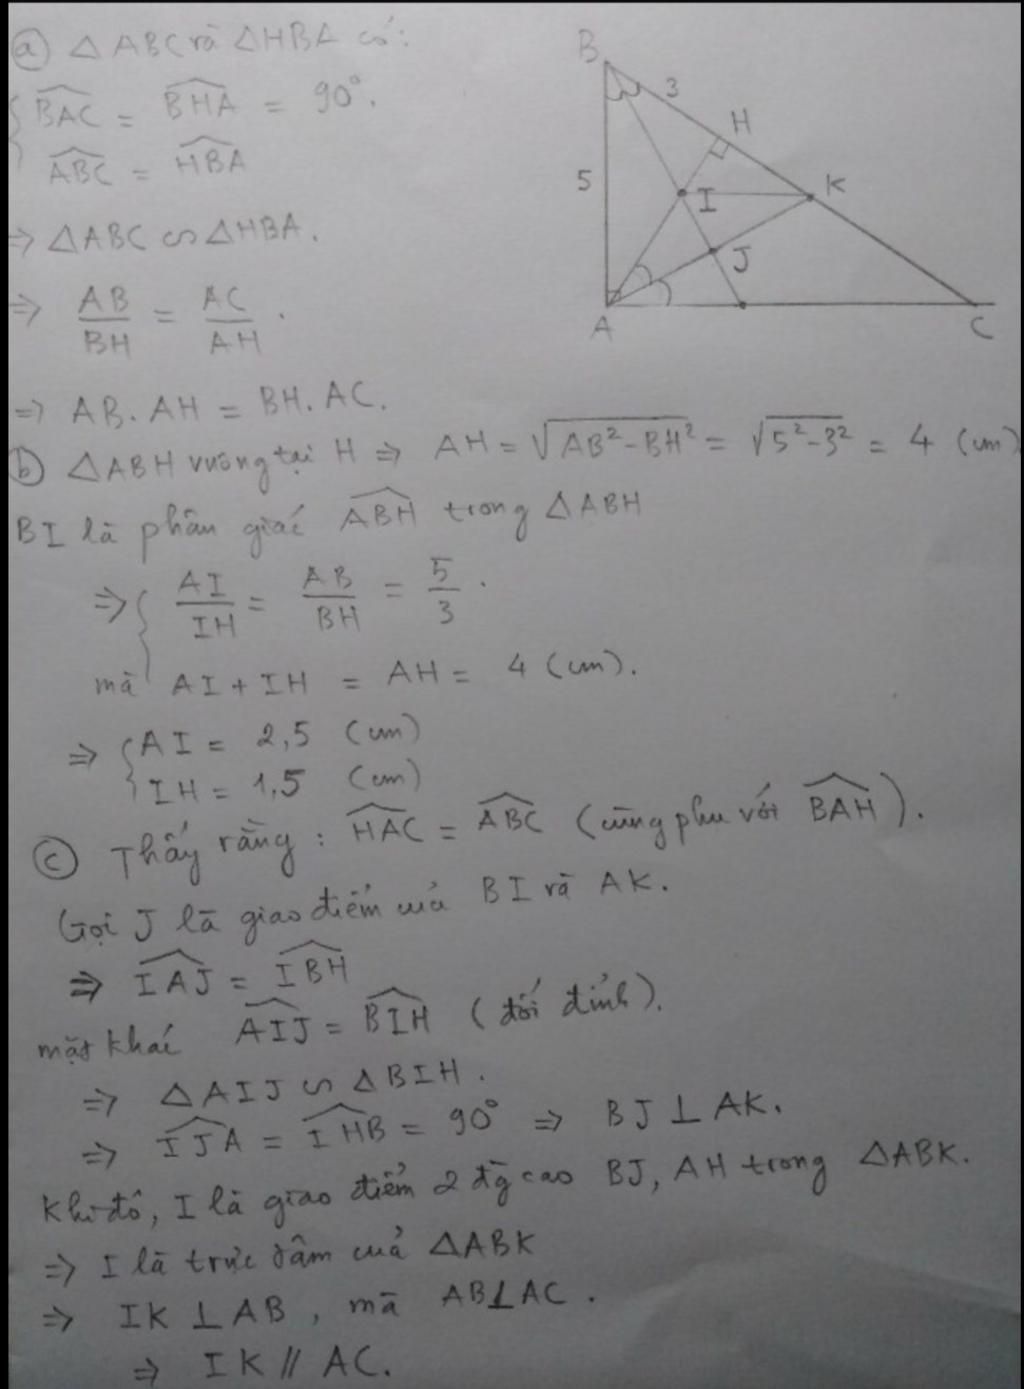 a) △ABC và △HBA có:
{ \widehat{BAC} = \widehat{BHA} = 90°.
\widehat{ABC} = \widehat{HBA}
⇒ △ABC ∽ △HBA.
⇒ AB/BH = AC/AH.
⇒ AB.AH = BH.AC.
B
3
H
5
I
K
J
A
C
b) △ABH vuông tại H ⇒ AH = √(AB² - BH²) = √(5² - 3²) = 4 (cm)
BI là phân giác \widehat{ABH} trong △ABH
⇒ { AI/IH = AB/BH = 5/3.
mà AI + IH = AH = 4 (cm).
⇒ { AI = 2,5 (cm)
IH = 1,5 (cm)
c) Thấy rằng: \widehat{HAC} = \widehat{ABC} (cùng phụ với \widehat{BAH}).
Gọi J là giao điểm của BI và AK.
⇒ \widehat{IAJ} = \widehat{IBH}
mặt khác \widehat{AIJ} = \widehat{BIH} (đối đỉnh).
⇒ △AIJ ∽ △BIH.
⇒ \widehat{IJA} = \widehat{IHB} = 90° ⇒ BJ ⊥ AK.
Khi đó, I là giao điểm 2 đg cao BJ, AH trong △ABK.
⇒ I là trực tâm của △ABK
⇒ IK ⊥ AB, mà AB ⊥ AC.
⇒ IK // AC.